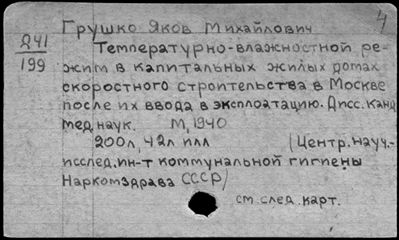 Грушко Яков Михайлович
4
241
199
Температурно-влажностной ре-
жим в капитальных жилых домах
скоростного строительства в Москве
после их ввода в эксплоатацию. Дисс. канд
мед. наук. М, 1940
200л, 42л илл (Центр. науч.-
исслед. ин-т коммунальной гигиены
Наркомздрава СССР)
см. след. карт.